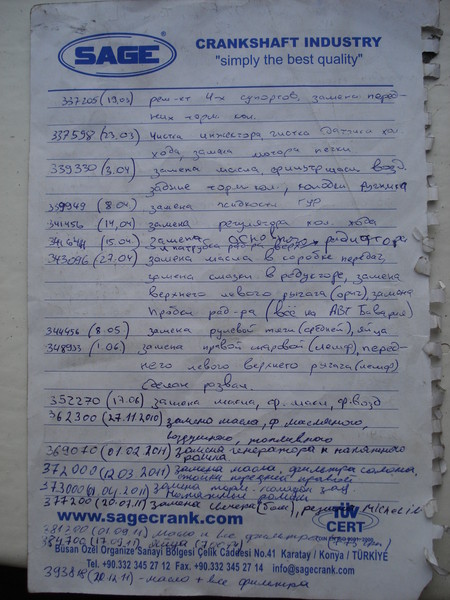 SAGE
CRANKSHAFT INDUSTRY
"simply the best quality"
337205 (19.03) рем-кт 4-х супортов, замена перед-
них торм. кол.
337598 (23.03) Чистка инжектора, чистка датчика хол
хода, замена мотора печки
339330 (3.04) замена масла, фильтр масл, возд.
задние торм кол, колодки ручника
339949 (8.04) замена жидкости ГУР
341456 (14.04) замена регулятора хол. хода
(15.04) замена основного радиатора
343096 (27.04) замена масла в коробке передач,
замена смазки в редукторе, замена
верхнего левого рычага (ориг), замена
Пробки рад-ра (всё на АВТ Бавария)
344456 (8.05) замена рулевой тяги (средней), яйца
348933 (1.06) замена правой шаровой (лемф), перед-
него левого верхнего рычага (лемф)
сделан развал.
352270 (17.06) замена масла, ф. масл, ф. возд
362300 (27.11.2010) замена масла, ф масляного,
воздушного, топливного
369070 (01.02.2011) замена генератора и натяжного
ролика
372000 (12.03.2011) замена масла, фильтра салона,
передней правой
373000 замена торм. колодок зад.
377200 (20.07.11) замена резина Michelin
www.sagecrank.com
TÜV
CERT
381200 (01.09.11) масло и все фильтра
(17.09.11)
Busan Özel Organize Sanayi Bölgesi Çelik Caddesi No.41 Karatay / Konya / TÜRKİYE
Tel. +90.332 345 27 12 Fax. +90.332 345 27 14 info@sagecrank.com
(20.12.11) - масло + все фильтра